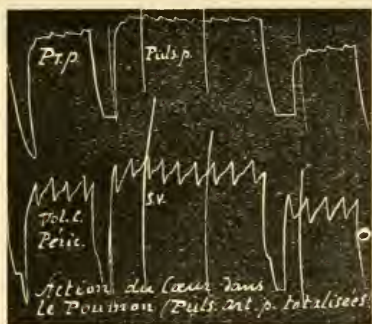 Pr.p. Puls.p.
S.V.
Vol. C.
Péric.
Action du Cœur dans
le Poumon (Puls. art. p. totalisées)